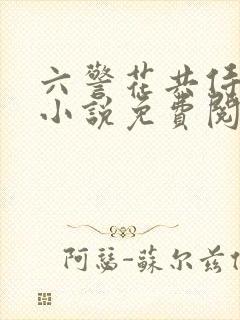 六警花共侍
小說免費閱
阿瑟-蘇尔兹